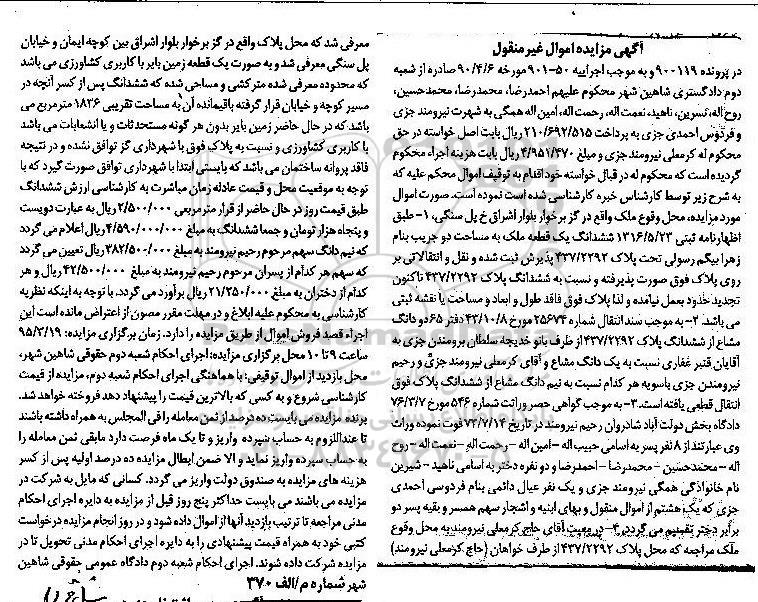 آگهی مزایده اموال غیر منقول
در پرونده ۹۰۰۱۱۹ و به موجب اجراییه ۵۰-۹۰۱ مورخه ۹۰/۴/۶ صادره از شعبه
دوم دادگستری شاهین شهر محکوم علیهم احمدرضا، محمدرضا، محمدحسین،
روح‌اله، نسرین، ناهید، نعمت اله، رحمت اله، امین اله همگی به شهرت نیرومند جزی
و فردوس احمدی جزی به پرداخت ۲۱۰/۶۹۲/۵۱۵ ریال بابت اصل خواسته در حق
محکوم له کرمعلی نیرومند جزی و مبلغ ۴/۹۵۱/۴۷۰ ریال بابت هزینه اجراء محکوم
گردیده است که محکوم له در قبال خواسته خود اقدام به توقیف اموال محکم علیه که
به شرح زیر توسط کارشناس خبره کارشناسی شده است نموده است. صورت اموال
مورد مزایده، محل وقوع ملک واقع در گز برخوار بلوار اشراق خ پل سنگی، ۱- طبق
اظهارنامه ثبتی ۱۳۱۶/۵/۲۳ ششدانگ یک قطعه ملک به مساحت دو جریب بنام
زهرا بیگم رسولی تحت پلاک ۴۳۷/۲۲۹۲ پذیرش ثبت شده و نقل و انتقالاتی بر
روی پلاک فوق صورت پذیرفته و نسبت به ششدانگ پلاک ۴۳۷/۲۲۹۲ تاکنون
تجدید حدود بعمل نیامده و لذا پلاک فوق فاقد طول و ابعاد و مساحت یا نقشه ثبتی
می باشد. ۲- به موجب سند انتقال شماره ۲۵۶۷۴ مورخ ۴۳/۱۰/۸ دفتر ۶۵ دو دانگ
مشاع از ششدانگ پلاک ۴۳۷/۲۲۹۲ از طرف بانو خدیجه سلطان برومندن جزی به
آقایان قنبر غفاری نسبت به یک دانگ مشاع و آقای کرمعلی نیرومند جزی و رحیم
نیرومندن جزی باسویه هر کدام نسبت به نیم دانگ مشاع از ششدانگ پلاک فوق
انتقال قطعی یافته است. ۳- به موجب گواهی حصر وراثت شماره ۵۴۶ مورخ ۷۶/۳/۷
دادگاه بخش دولت آباد شادروان رحیم نیرومند در تاریخ ۷۲/۷/۱۴ فوت نموده وراث
وی عبارتند از ۸ نفر پسر به اسامی حبیب اله - امین اله - رحمت اله - نعمت اله - روح
اله - محمدحسین - محمدرضا - احمدرضا و دو نفره دختر به اسامی ناهید - شیرین
نام خانوادگی همگی نیرومند جزی و یک نفر عیال دائمی بنام فردوسی احمدی
جزی که یک هشتم از اموال منقول و بهای ابنیه و اشجار سهم همسر و بقیه پسر دو
برابر دختر تقسیم می گردد. ۴- در معیت آقای حاج کرمعلی نیرومند به محل وقوع
ملک مراجعه که محل پلاک ۴۳۷/۲۲۹۲ از طرف خواهان (حاج کرمعلی نیرومند)
معرفی شد که محل پلاک واقع در گز برخوار بلوار اشراق بین کوچه ایمان و خیابان
پل سنگی معرفی شد و به صورت یک قطعه زمین بایر با کاربری کشاورزی می باشد
که محدوده معرفی شده مترکشی و مساحی شده که ششدانگ پس از کسر آنچه در
مسیر کوچه و خیابان قرار گرفته باقیمانده آن به مساحت تقریبی ۱۸۳۶ مترمربع می
باشد که در حال حاضر زمین بایر بدون هر گونه مستحدثات و یا انشعابات می باشد
با کاربری کشاورزی و نسبت به پلاک فوق با شهرداری گز توافقی نشده و در نتیجه
فاقد پروانه ساختمان می باشد که بایستی ابتدا با شهرداری توافق صورت گیرد که با
توجه به موقعیت محل و قیمت عادله زمان مباشرت به کارشناسی ارزش ششدانگ
طبق قیمت روز در حال حاضر از قرار مترمربعی ۲/۵۰۰/۰۰۰ ریال به عبارت دویست
و پنجاه هزار تومان و جمعا ششدانگ به مبلغ ۴/۵۹۰/۰۰۰/۰۰۰ ریال اعلام می گردد
که نیم دانگ سهم مرحوم رحیم نیرومند به مبلغ ۳۸۲/۵۰۰/۰۰۰ ریال تعیین می گردد
که سهم هر کدام از پسران مرحوم رحیم نیرومند به مبلغ ۴۲/۵۰۰/۰۰۰ ریال و هر
کدام از دختران به مبلغ ۲۱/۲۵۰/۰۰۰ ریال برآورد می گردد. با توجه به اینکه نظریه
کارشناسی به محکوم علیه ابلاغ و در مهلت مقرر مصون از اعتراض مانده است این
اجراء قصد فروش اموال از طریق مزایده را دارد. زمان برگزاری مزایده: ۹۵/۳/۱۹
ساعت ۹ تا ۱۰ محل برگزاری مزایده: اجرای احکام شعبه دوم حقوقی شاهین شهر،
محل بازدید از اموال توقیفی: با هماهنگی اجرای احکام شعبه دوم، مزایده از قیمت
کارشناسی شروع و به کسی که بالاترین قیمت را پیشنهاد دهد فروخته خواهد شد.
برنده مزایده می بایست ده درصد از ثمن معامله را فی المجلس به همراه داشته باشند
تا عنداللزوم به حساب سپرده واریز و تا یک ماه فرصت دارد مابقی ثمن معامله را
به حساب سپرده واریز نماید و الا ضمن ابطال مزایده ده درصد اولیه پس از کسر
هزینه های مزایده به صندوق دولت واریز می گردد. کسانی که مایل به شرکت در
مزایده می باشند می بایست حداکثر پنج روز قبل از مزایده به دایره اجرای احکام
مدنی مراجعه تا ترتیب بازدید آنها از اموال داده شود و در روز انجام مزایده درخواست
کتبی خود به همراه قیمت پیشنهادی را به دایره اجرای احکام مدنی تحویل تا در
مزایده شرکت داده شوند. اجرای احکام شعبه دوم دادگاه عمومی حقوقی شاهین
شهر شماره م/الف ۳۷۰